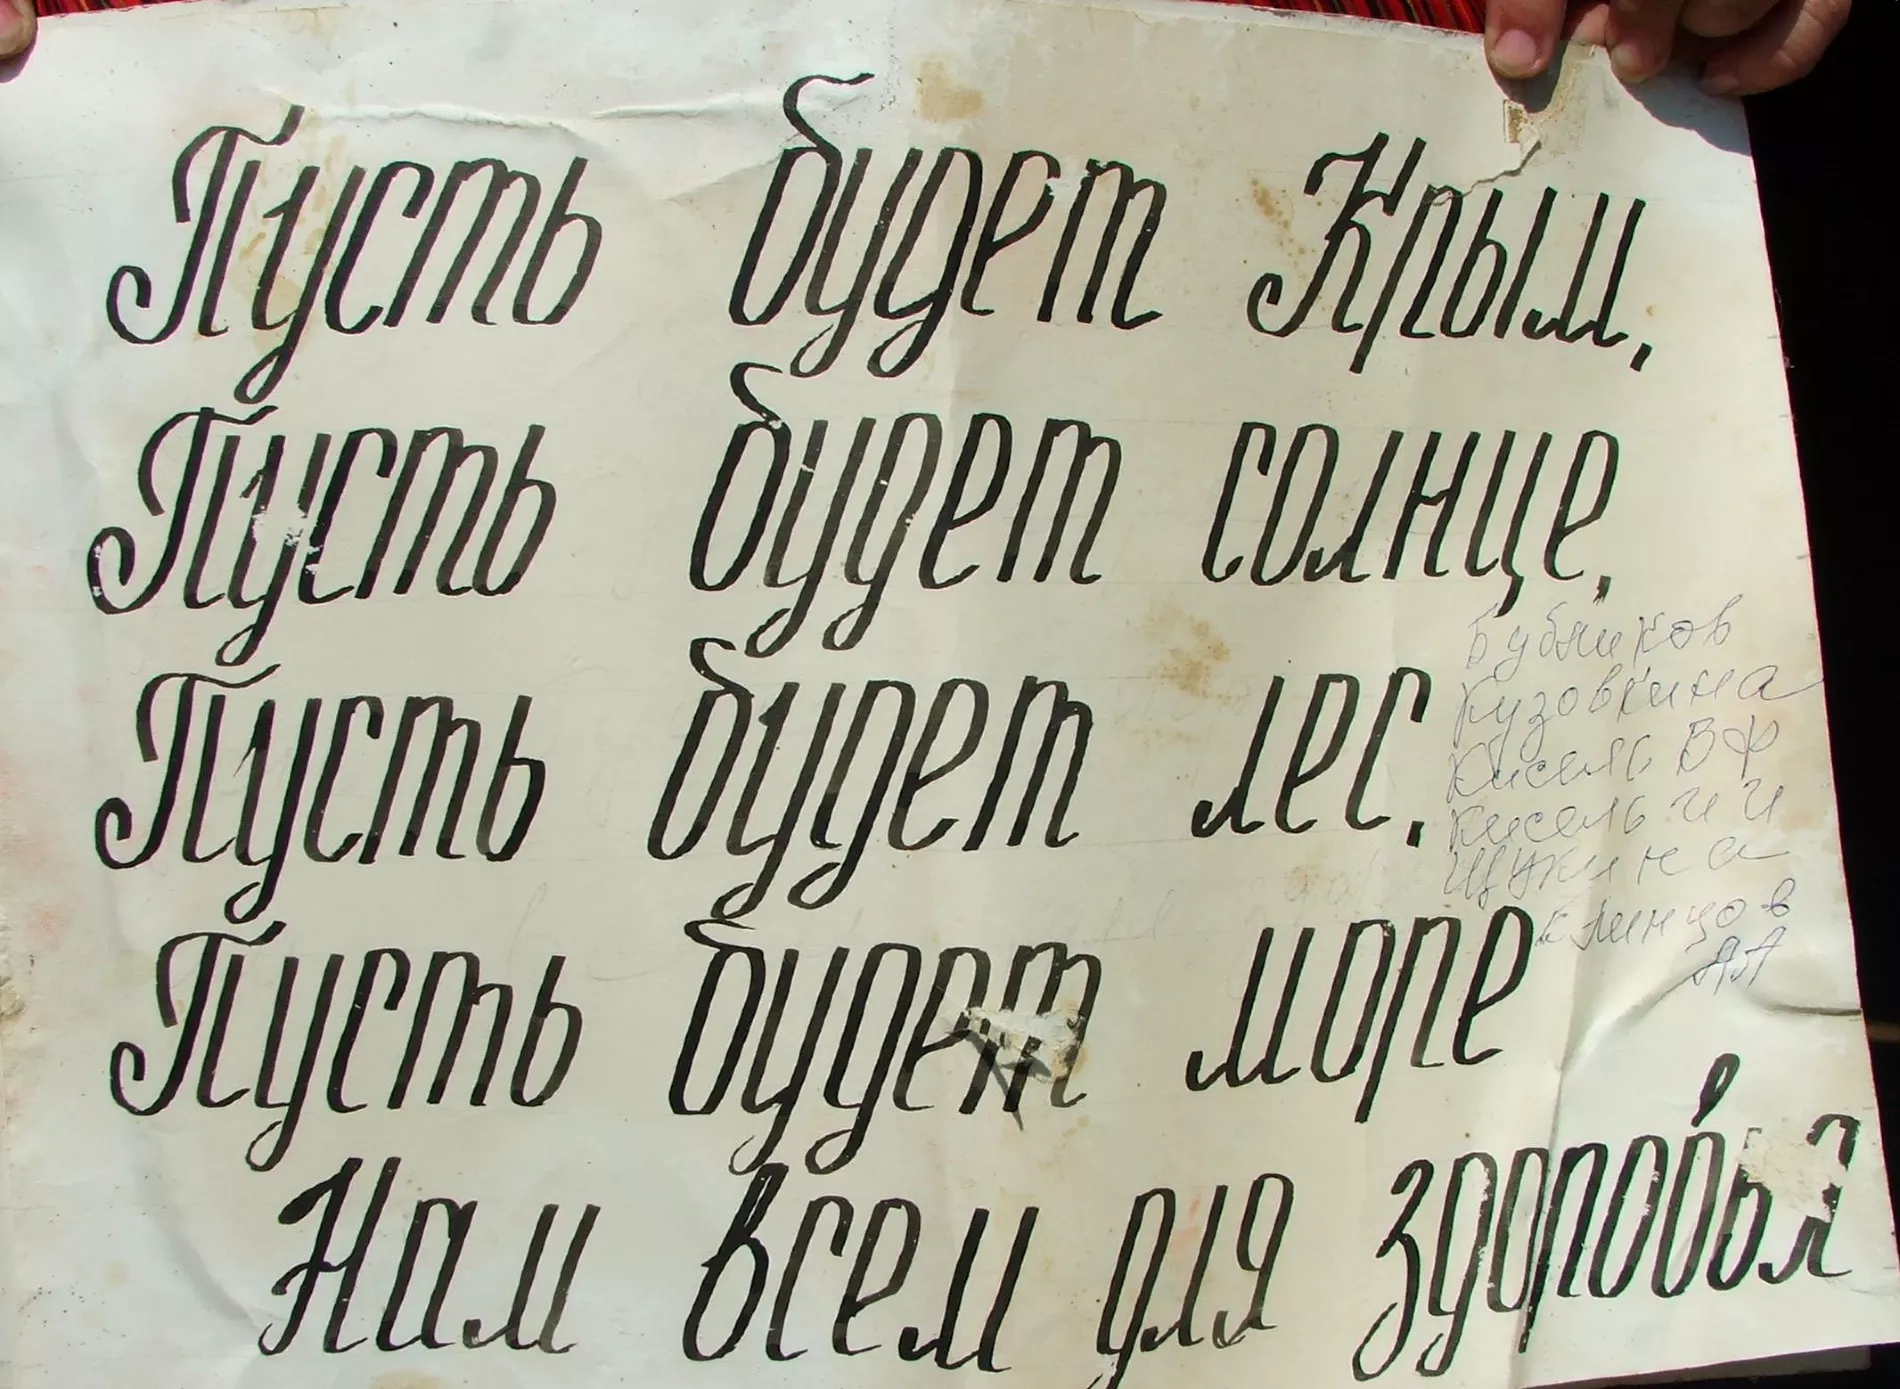 Пусть будет Крым,
Пусть будет солнце,
Пусть будет лес,
Пусть будет море
Нам всем для здоровья
Бубликов
Кузовкина
Кисель В Ф
Кисель И И
Щукина
Клинцов
АА